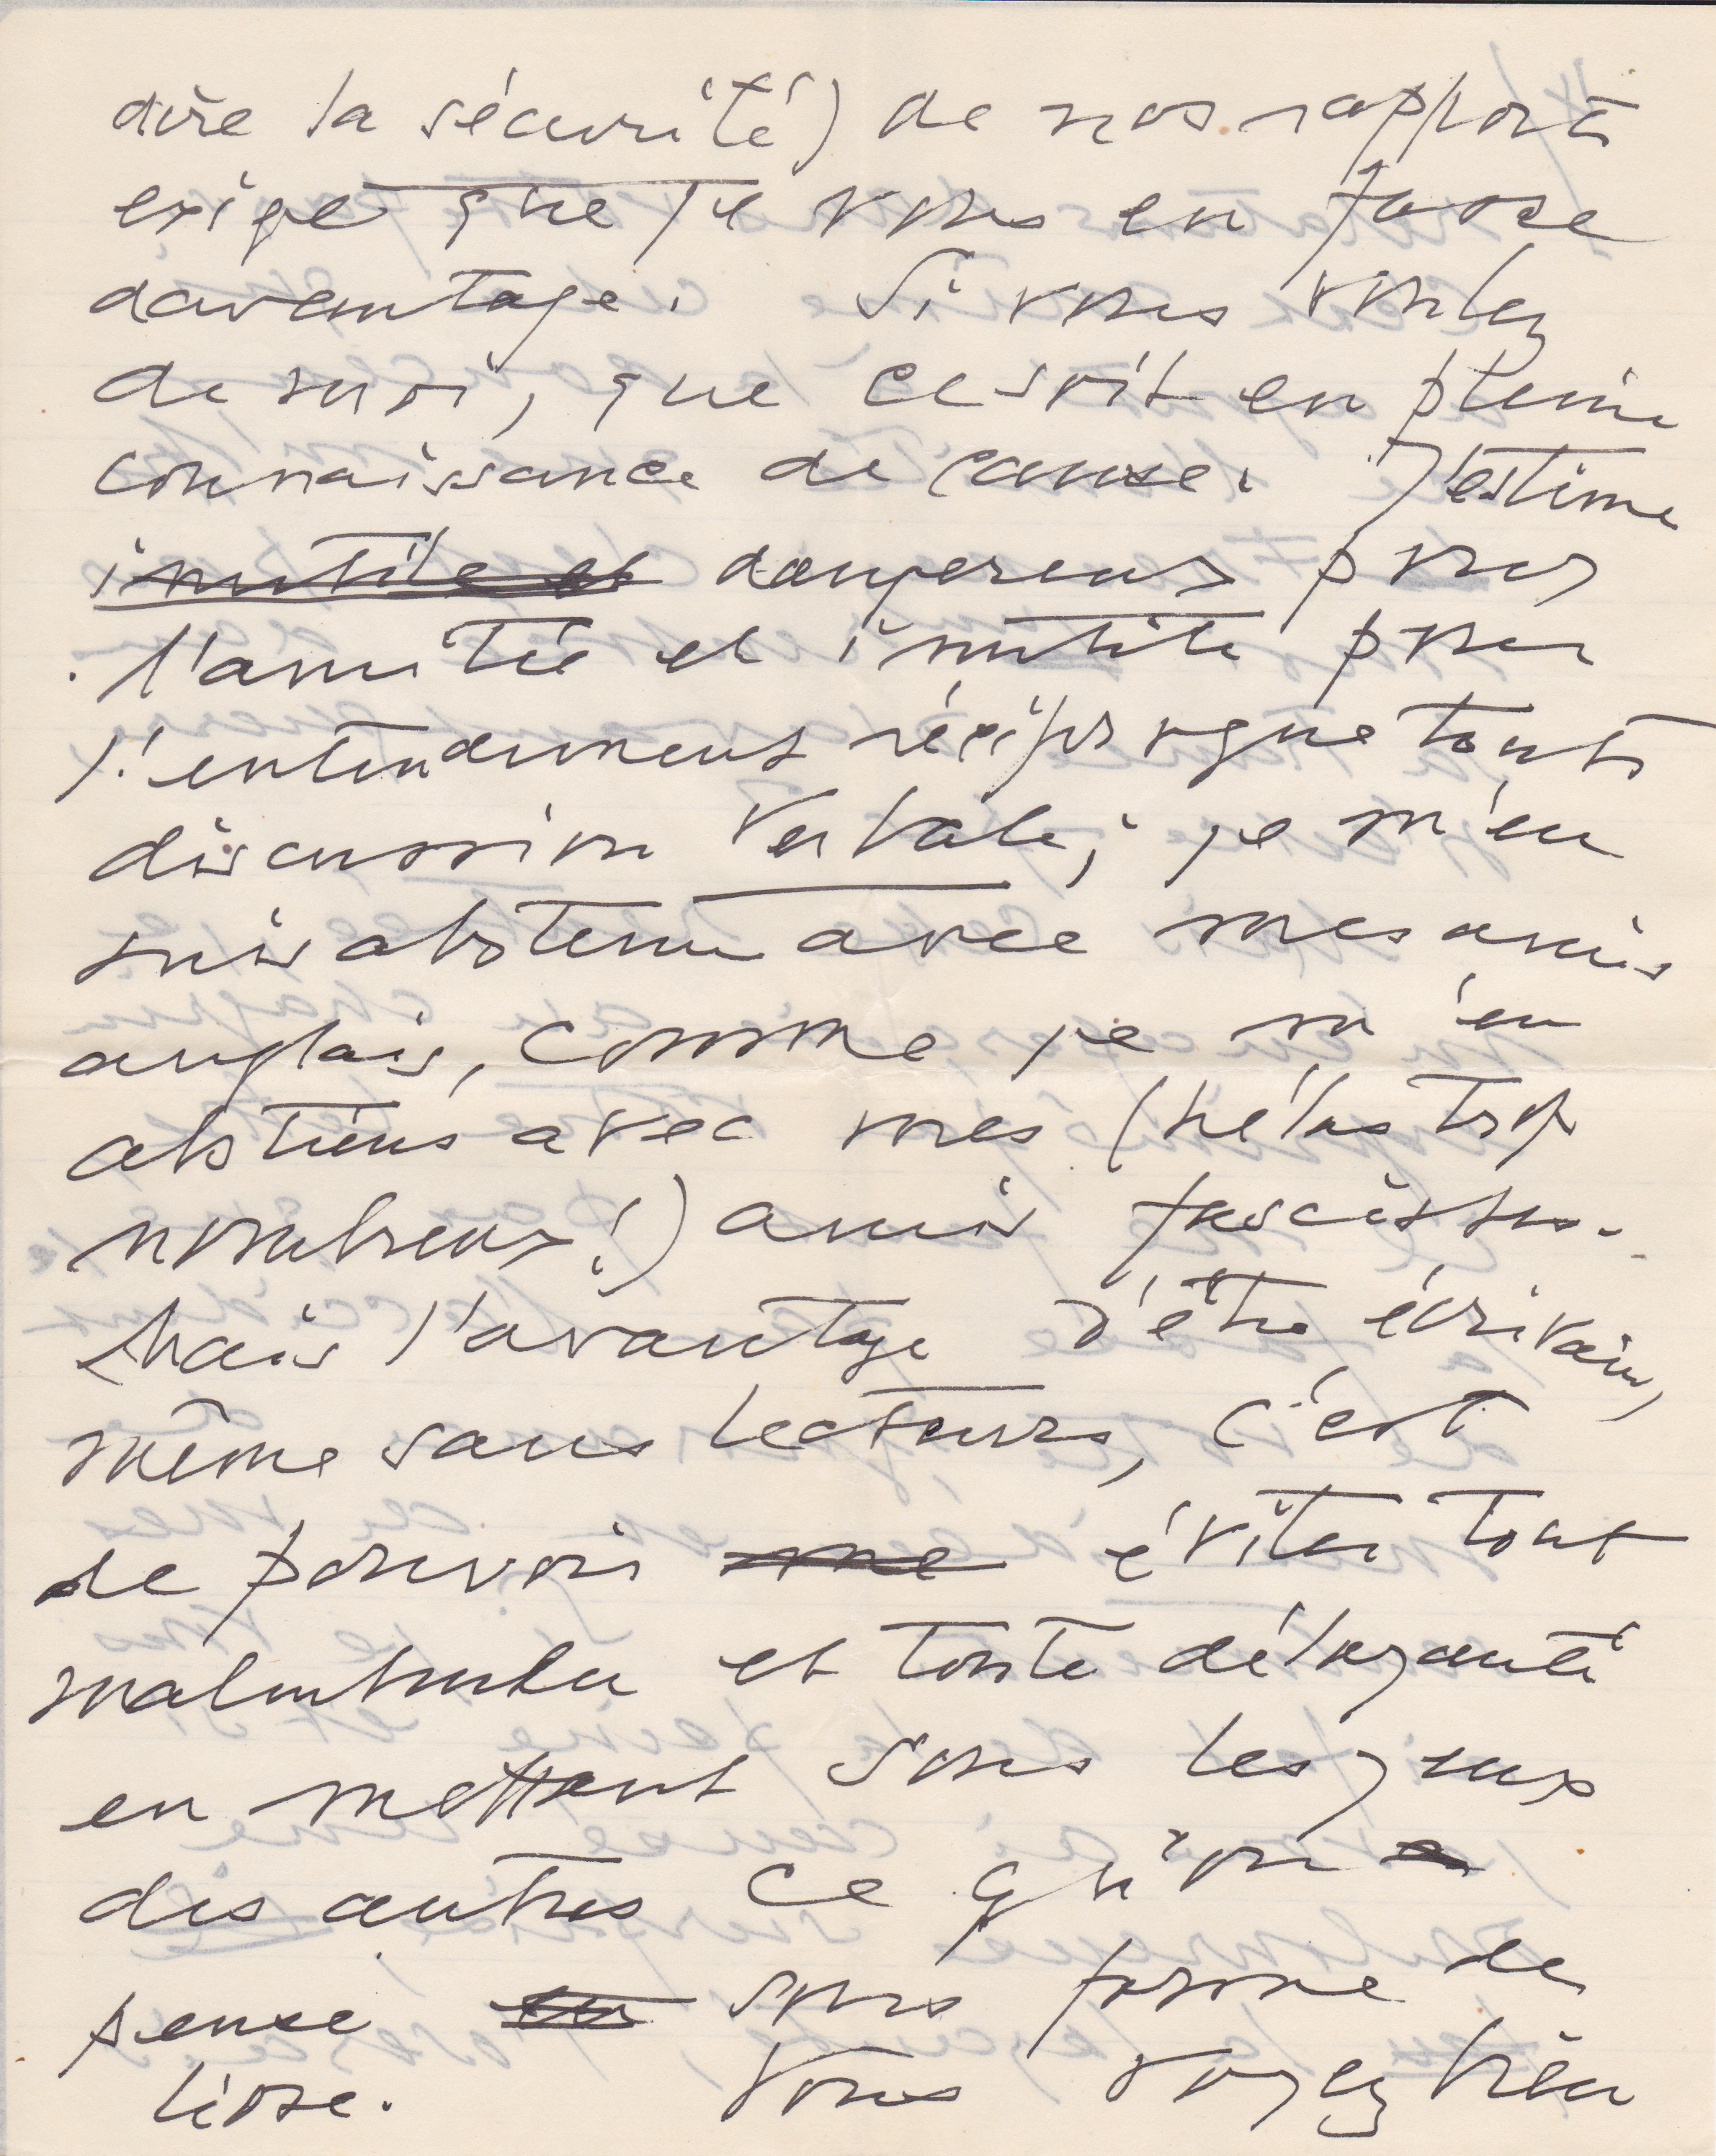 dire la sécurité) de nos rapports
exige que je vous en fasse
davantage. Si vous voulez
de moi, que ce soit en pleine
connaissance de cause. J'estime
inutile et dangereux pour
l'amitié et inutile pour
l'entendement réciproque toute
discussion verbale; je m'en
suis abstenu avec mes amis
anglais, comme je m'en
abstiens avec mes (hélas trop
nombreux!) amis fascistes.
Mais l'avantage d'être écrivain,
même sans lecteurs, c'est
de pouvoir me éviter tout
malentendu et toute déloyauté
en mettant sous les yeux
des autres ce qu'on
pense sous forme de
livre. Vous voyez bien